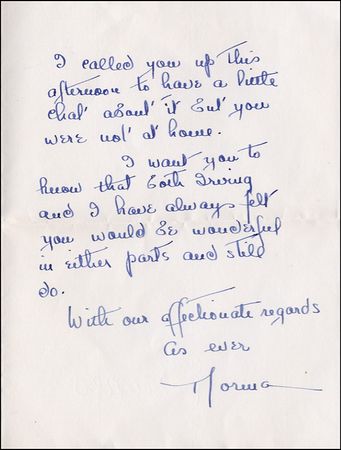 I called you up this
afternoon to have a little
chat about it but you
were not at home.
I want you to
know that both Irving
and I have always felt
you would be wonderful
in either parts and still
do.
With our affectionate regards
As ever
Norma